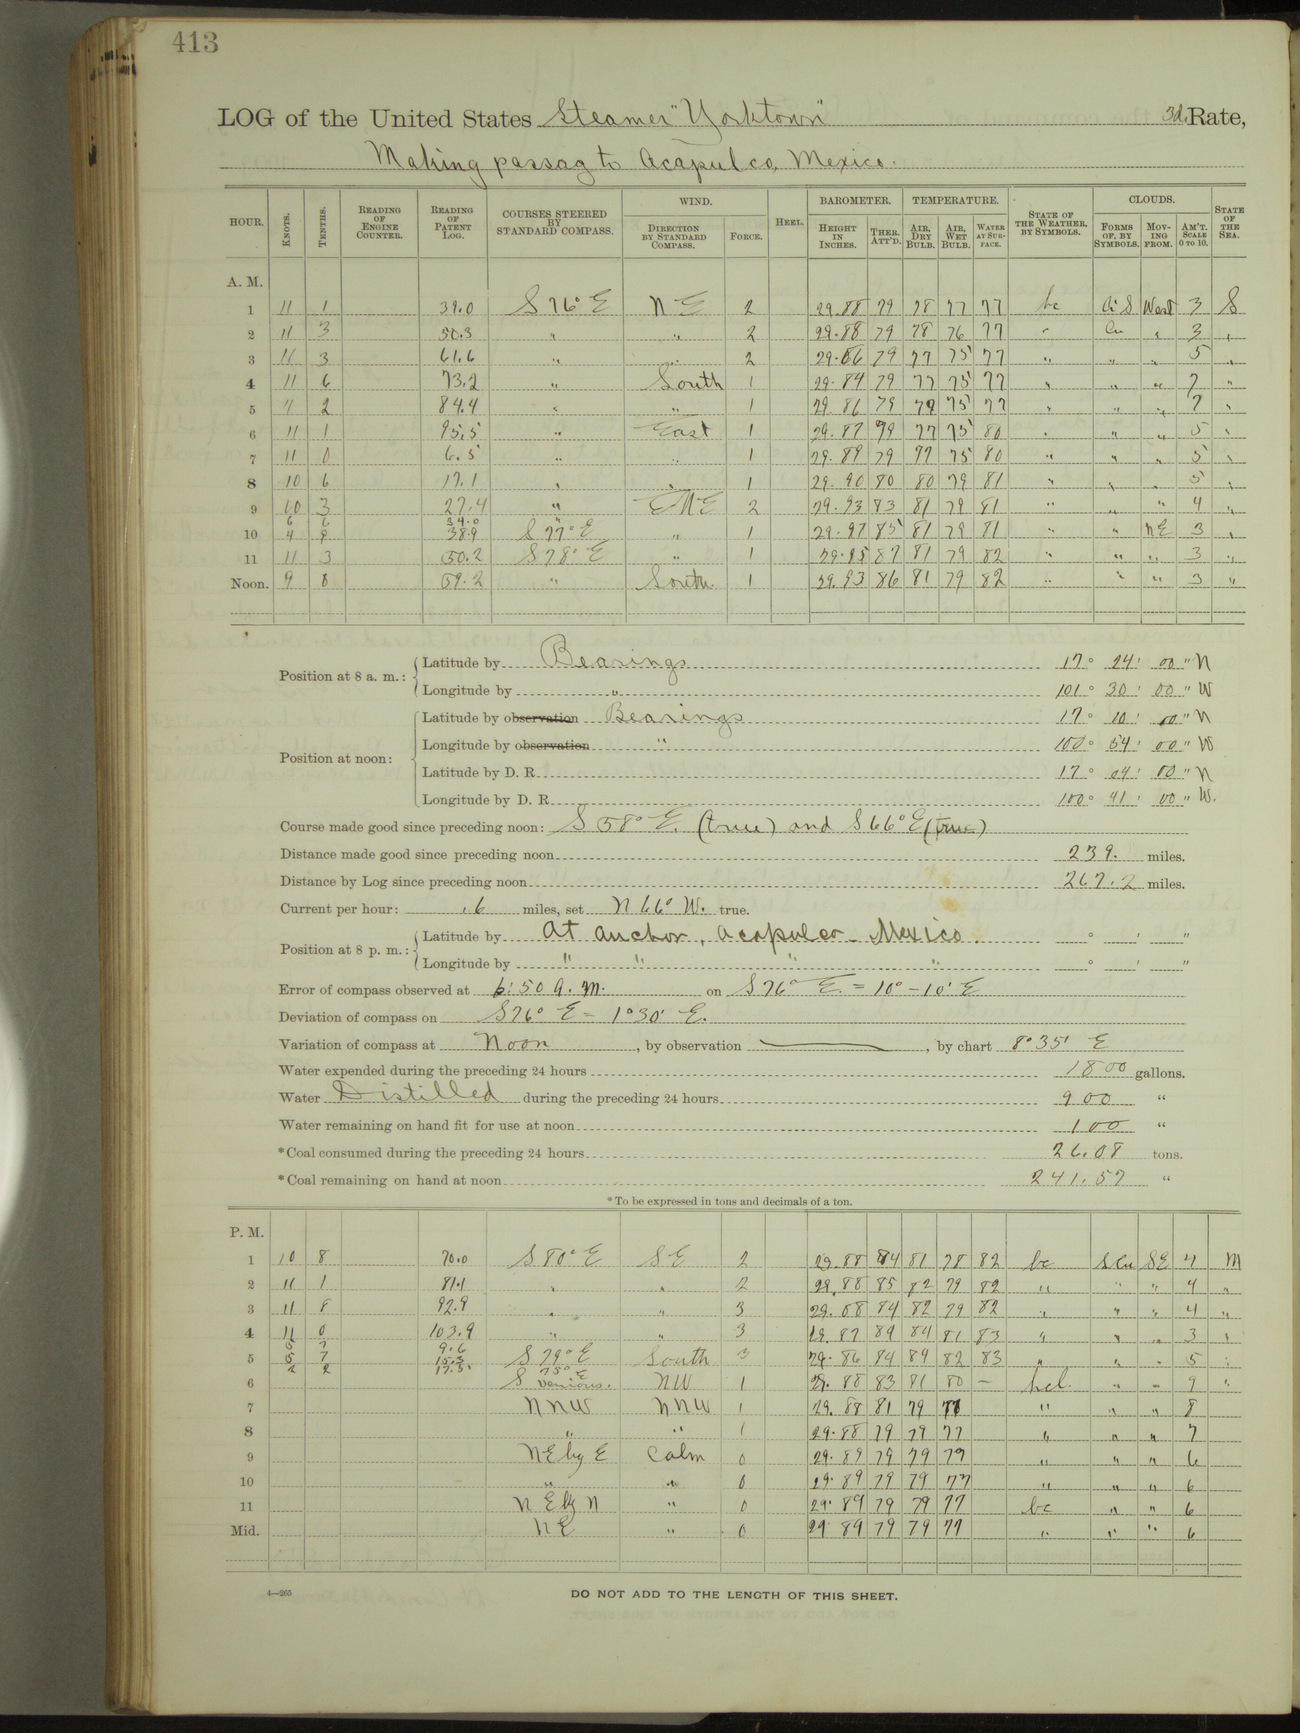 413
LOG of the United States Steamer "Yorktown" 3d Rate,
Making passag to Acapulco, Mexico.
HOUR. KNOTS. TENTHS. READING OF ENGINE COUNTER. READING OF PATENT LOG. COURSES STEERED BY STANDARD COMPASS. WIND. DIRECTION BY STANDARD COMPASS. FORCE. HEEL. BAROMETER. HEIGHT IN INCHES. THER. ATT'D. TEMPERATURE. AIR, DRY BULB. AIR, WET BULB. WATER AT SURFACE. STATE OF THE WEATHER, BY SYMBOLS. CLOUDS. FORMS OF, BY SYMBOLS. MOVING FROM. AM'T. SCALE 0 TO 10. STATE OF THE SEA.
A. M.
1 11 1 39.0 S 76° E NE 2 29.88 79 78 77 77 bc Ci S West 3 S
2 11 3 50.3 " " 2 29.88 79 78 76 77 " Cu " 3 "
3 11 3 61.6 " " 2 29.86 79 77 75 77 " " " 5 "
4 11 6 73.2 " South 1 29.84 79 77 75 77 " " " 7 "
5 11 2 84.4 " " 1 29.86 79 79 75 77 " " " 7 "
6 11 1 95.5 " East 1 29.87 79 77 75 80 " " " 5 "
7 11 0 6.5 " " 1 29.89 79 77 75 80 " " " 5 "
8 10 6 17.1 " " 1 29.90 80 80 79 81 " " " 5 "
9 10 3 27.4 " ENE 2 29.93 83 81 79 81 " " " 4 "
6 6 34.0 "
10 4 9 38.9 S 77° E " 1 29.97 85 81 79 81 " " NE 3 "
11 11 3 50.2 S 78° E " 1 29.95 87 81 79 82 " " " 3 "
Noon. 9 0 59.2 " South 1 29.93 86 81 79 82 " " " 3 "
Position at 8 a. m.: Latitude by Bearings 17° 24' 00" N
Longitude by " 101° 30' 00" W
Position at noon: Latitude by observation Bearings 17° 10' 00" N
Longitude by observation " 100° 54' 00" W
Latitude by D. R. 17° 04' 00" N
Longitude by D. R. 100° 41' 00" W.
Course made good since preceding noon: S 58° E. (true) and S 66° E (true)
Distance made good since preceding noon 239. miles.
Distance by Log since preceding noon 267.2 miles.
Current per hour: .6 miles, set N 66° W. true.
Position at 8 p. m.: Latitude by At anchor, Acapulco. Mexico. ° ' "
Longitude by " " " " ° ' "
Error of compass observed at 6:50 a.m. on S 76° E. = 10° - 10' E
Deviation of compass on S 76° E = 1° 30' E.
Variation of compass at Noon, by observation , by chart 8° 35' E
Water expended during the preceding 24 hours 1800 gallons.
Water Distilled during the preceding 24 hours 900 "
Water remaining on hand fit for use at noon 100 "
*Coal consumed during the preceding 24 hours 26.08 tons.
*Coal remaining on hand at noon 241.57 "
*To be expressed in tons and decimals of a ton.
P. M.
1 10 8 70.0 S 80° E SE 2 29.88 84 81 78 82 bc S Cu SE 4 M
2 11 1 81.1 " " 2 29.88 85 82 79 82 " " " 4 "
3 11 8 92.9 " " 3 29.88 84 82 79 82 " " " 4 "
4 11 0 103.9 " " 3 29.87 84 84 81 83 " " " 3 "
5 7 9.6
5 5 7 15.3 S 79° E South 3 29.86 84 84 82 83 " " " 5 "
2 2 17.5 S 75° E
6 various. NW 1 29.88 83 81 80 — bcl. " " 9 "
7 NNW NNW 1 29.88 81 79 78 " " " 8
8 " " 1 29.88 79 79 77 " " " 7
9 NE by E Calm 0 29.89 79 79 77 " " " 6
10 " " 0 29.89 79 79 77 " " " 6
11 NE by N " 0 29.89 79 79 77 bc " " 6
Mid. NE " 0 29.89 79 79 77 " " " 6
4—265 DO NOT ADD TO THE LENGTH OF THIS SHEET.